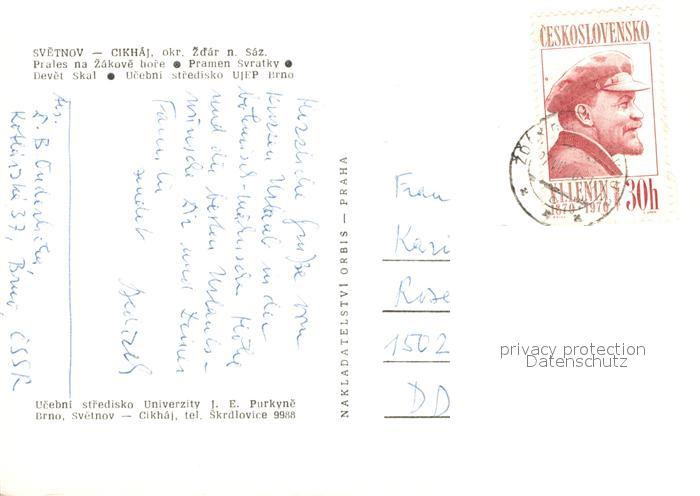 SVĚTNOV — CIKHÁJ, okr. Žďár n. Sáz.
Prales na Žákově hoře ● Pramen Svratky ●
Devět Skal ● Učební středisko UJEP Brno
Herzliche Grüße vom
kurzen Urlaub in der
böhmisch-mährischen Höhe
und die besten Urlaubs-
wünsche Dir und Deiner
Familie
sendet
Kotlářská 37, Brno, ČSSR
Učební středisko Univerzity J. E. Purkyně
Brno, Světnov — Cikháj, tel. Škrdlovice 9988
NAKLADATELSTVÍ ORBIS — PRAHA
ČESKOSLOVENSKO
V.I.LENIN
1870-1970
30h
Frau
Kari
Rose
1502
DD
privacy protection
Datenschutz